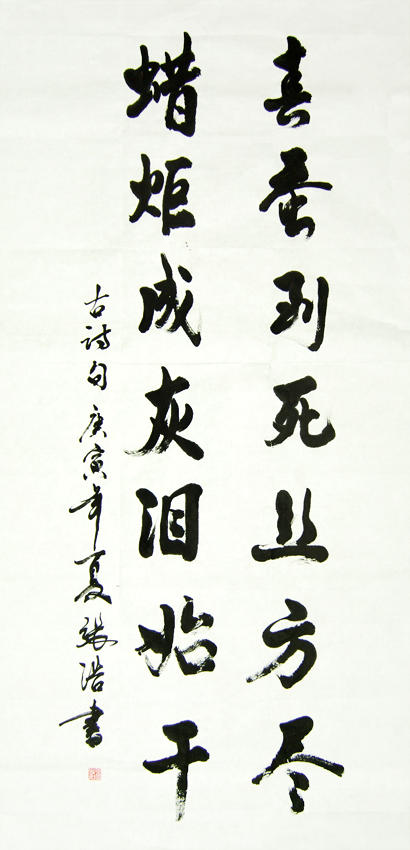 春蚕到死丝方尽
蜡炬成灰泪始干
古诗句庚寅年夏张浩书